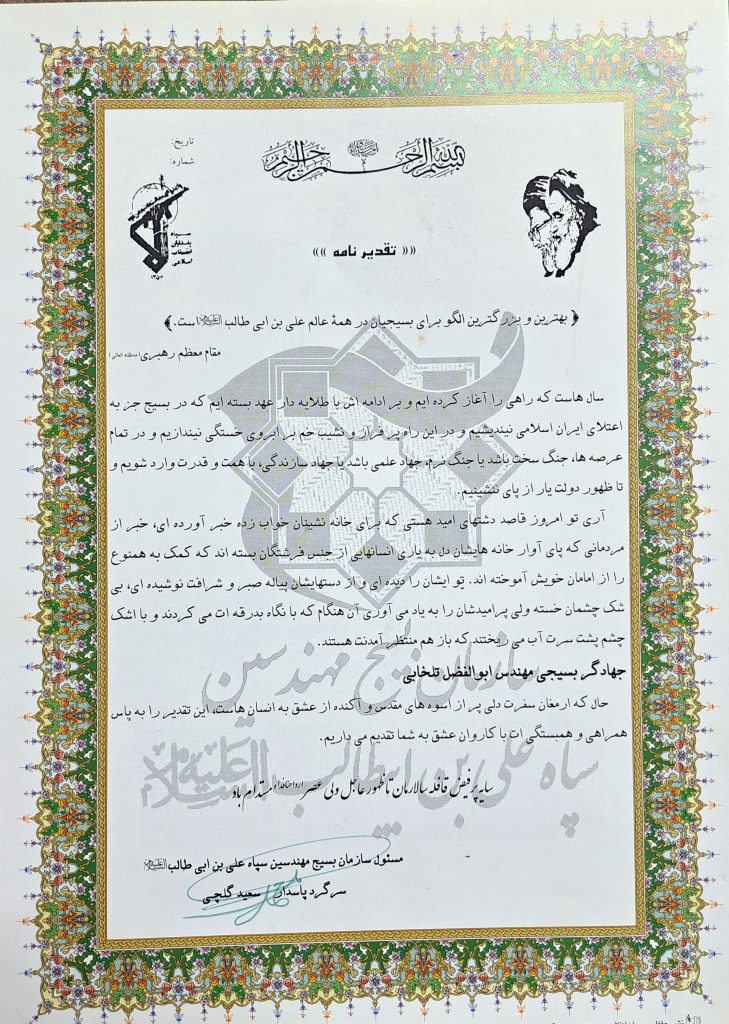 بسم الله الرحمن الرحیم
تاریخ:
شماره:
سپاه
پاسداران
انقلاب
اسلامی
۱۳۵۷
«« تقدیر نامه »»
﴿ بهترین و بزرگترین الگو برای بسیجیان در همهٔ عالم علی بن ابی طالب علیه السلام است. ﴾
مقام معظم رهبری (مدظله العالی)
سال هاست که راهی را آغاز کرده ایم و بر ادامه اش با طلایه دار عهد بسته ایم که در بسیج جز به
اعتلای ایران اسلامی نیندیشیم و در این راه پر فراز و نشیب خم بر ابروی خستگی نیندازیم و در تمام
عرصه ها، جنگ سخت باشد یا جنگ نرم، جهاد علمی باشد یا جهاد سازندگی، با همت و قدرت وارد شویم و
تا ظهور دولت یار از پای ننشینیم.
آری تو امروز قاصد دشتهای امید هستی که برای خانه نشینان خواب زده خبر آورده ای، خبر از
مردمانی که پای آوار خانه هایشان دل به یاری انسانهایی از جنس فرشتگان بسته اند که کمک به همنوع
را از امامان خویش آموخته اند. تو ایشان را دیده ای و از دستهایشان پیاله صبر و شرافت نوشیده ای، بی
شک چشمان خسته ولی پرامیدشان را به یاد می آوری آن هنگام که با نگاه بدرقه ات می کردند و با اشک
چشم پشت سرت آب می ریختند که باز هم منتظر آمدنت هستند.
جهادگر بسیجی مهندس ابوالفضل تلخابی
سازمان بسیج مهندسین
حال که ارمغان سفرت دلی پر از اسوه های مقدس و آکنده از عشق به انسان هاست، این تقدیر را به پاس
همراهی و همبستگی ات با کاروان عشق به شما تقدیم می داریم.
سپاه علی بن ابیطالب علیه السلام
سایه پرفیض قافله سالارمان تا ظهور عاجل ولی عصر ارواحنافداه مستدام باد
مسئول سازمان بسیج مهندسین سپاه علی بن ابی طالب علیه السلام
سرگرد پاسدار سعید گلچی